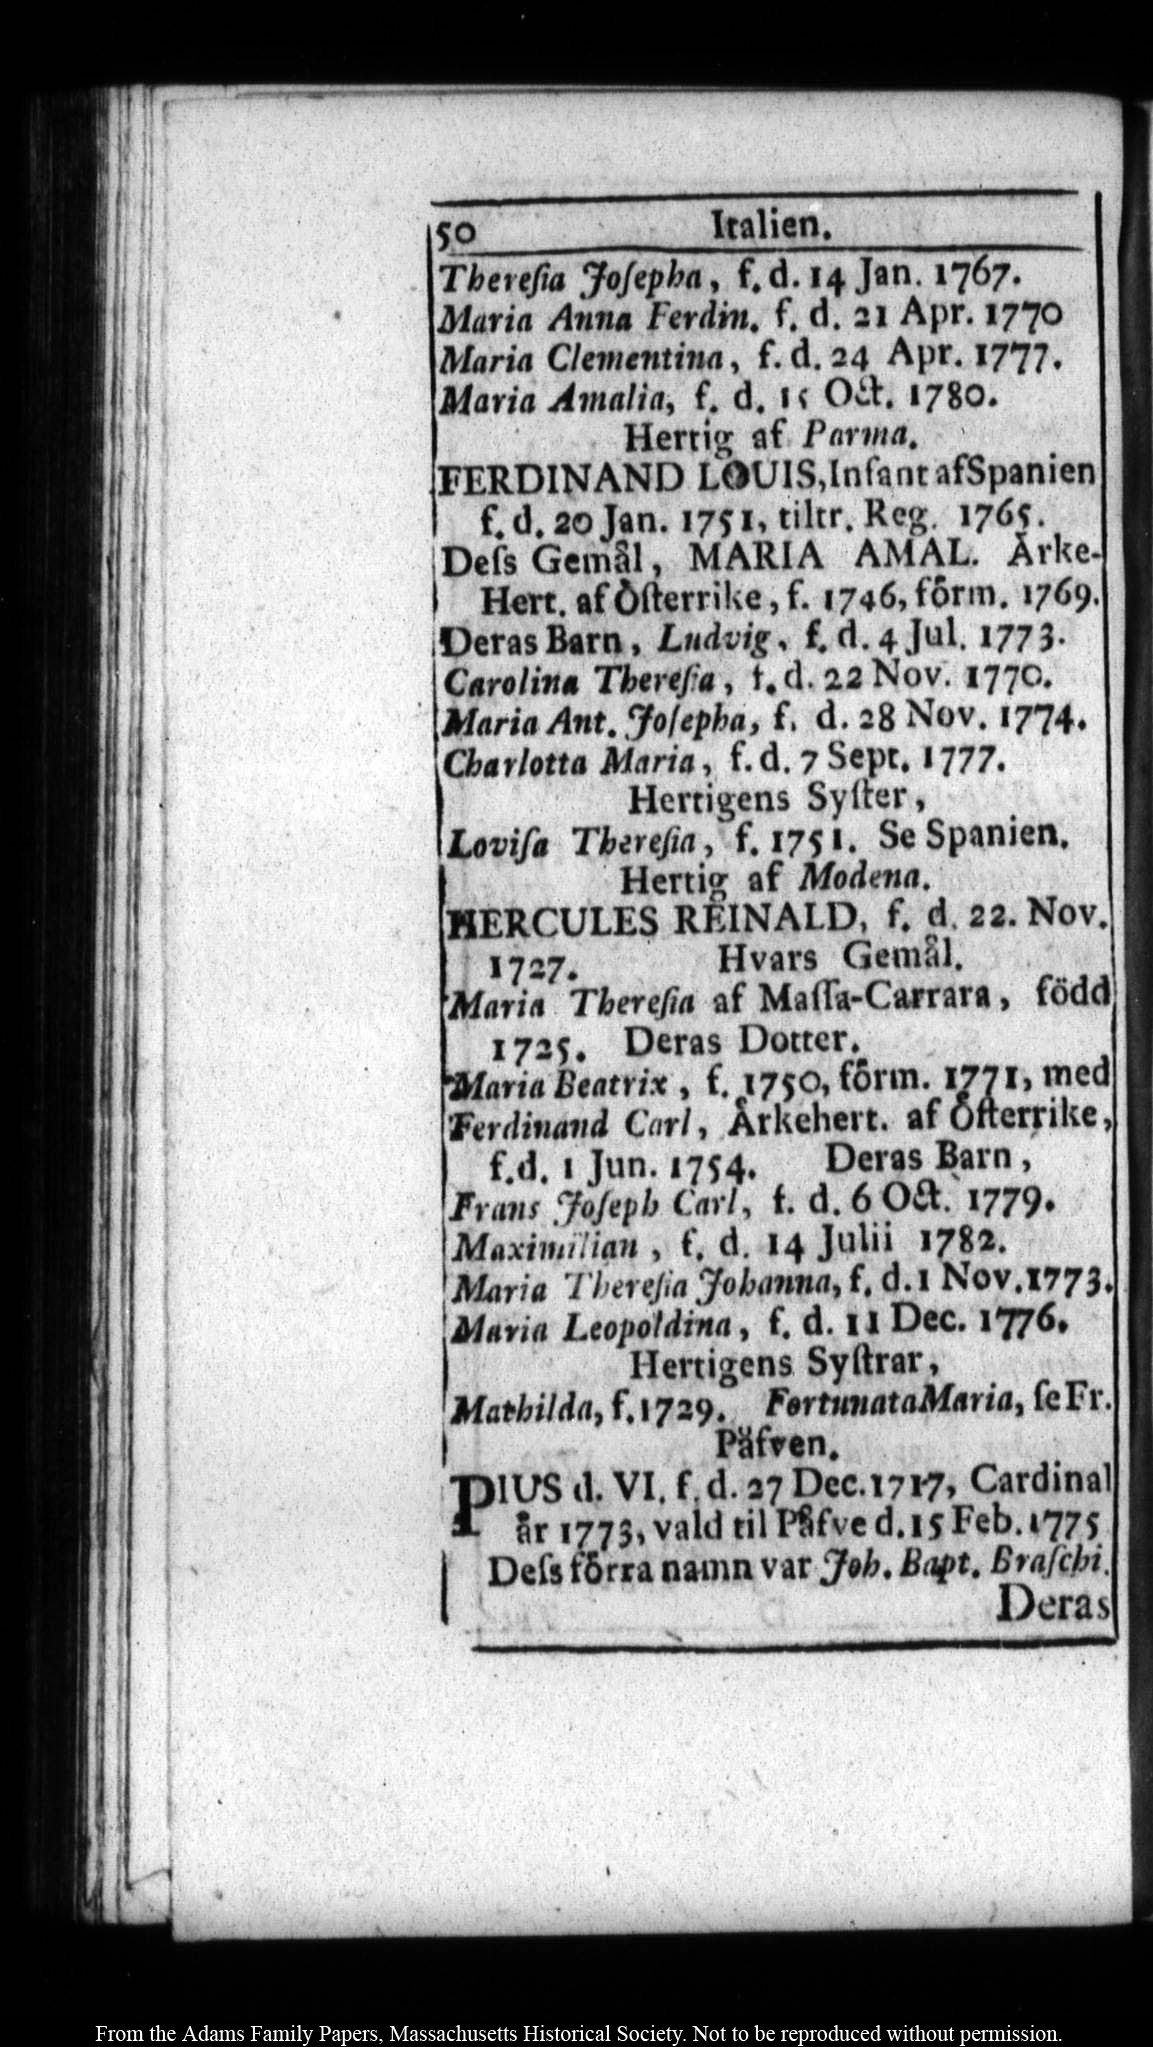 50 Italien.
Thereſia Joſepha, f. d. 14 Jan. 1767.
Maria Anna Ferdin. f. d. 21 Apr. 1770
Maria Clementina, f. d. 24 Apr. 1777.
Maria Amalia, f. d. 15 Oct. 1780.
Hertig af Parma.
FERDINAND LOUIS, Infant af Spanien
f. d. 20 Jan. 1751, tiltr. Reg. 1765.
Deſs Gemål, MARIA AMAL. Ärke-
Hert. af Öſterrike, f. 1746, förm. 1769.
Deras Barn, Ludvig, f. d. 4 Jul. 1773.
Carolina Thereſia, f. d. 22 Nov. 1770.
Maria Ant. Joſepha, f. d. 28 Nov. 1774.
Charlotta Maria, f. d. 7 Sept. 1777.
Hertigens Syſter,
Loviſa Thereſia, f. 1751. Se Spanien.
Hertig af Modena.
HERCULES REINALD, f. d. 22. Nov.
1727. Hvars Gemål.
Maria Thereſia af Maſſa-Carrara, född
1725. Deras Dotter.
Maria Beatrix, f. 1750, förm. 1771, med
Ferdinand Carl, Ärkehert. af Öſterrike,
f. d. 1 Jun. 1754. Deras Barn,
Frans Joſeph Carl, f. d. 6 Oct. 1779.
Maximilian, f. d. 14 Julii 1782.
Maria Thereſia Johanna, f. d. 1 Nov. 1773.
Maria Leopoldina, f. d. 11 Dec. 1776.
Hertigens Syſtrar,
Mathilda, f. 1729. Fortunata Maria, ſe Fr.
Påfven.
PIUS d. VI. f. d. 27 Dec. 1717, Cardinal
år 1773, vald til Påfve d. 15 Feb. 1775
Deſs förra namn var Joh. Bapt. Braſchi.
Deras
From the Adams Family Papers, Massachusetts Historical Society. Not to be reproduced without permission.